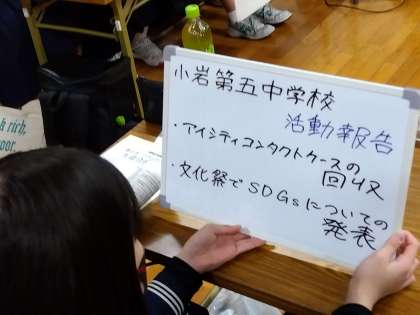 小岩第五中学校
活動報告
・アイシティコンタクトケースの
回収
・文化祭でSDGsについての
発表
rich,
oor.